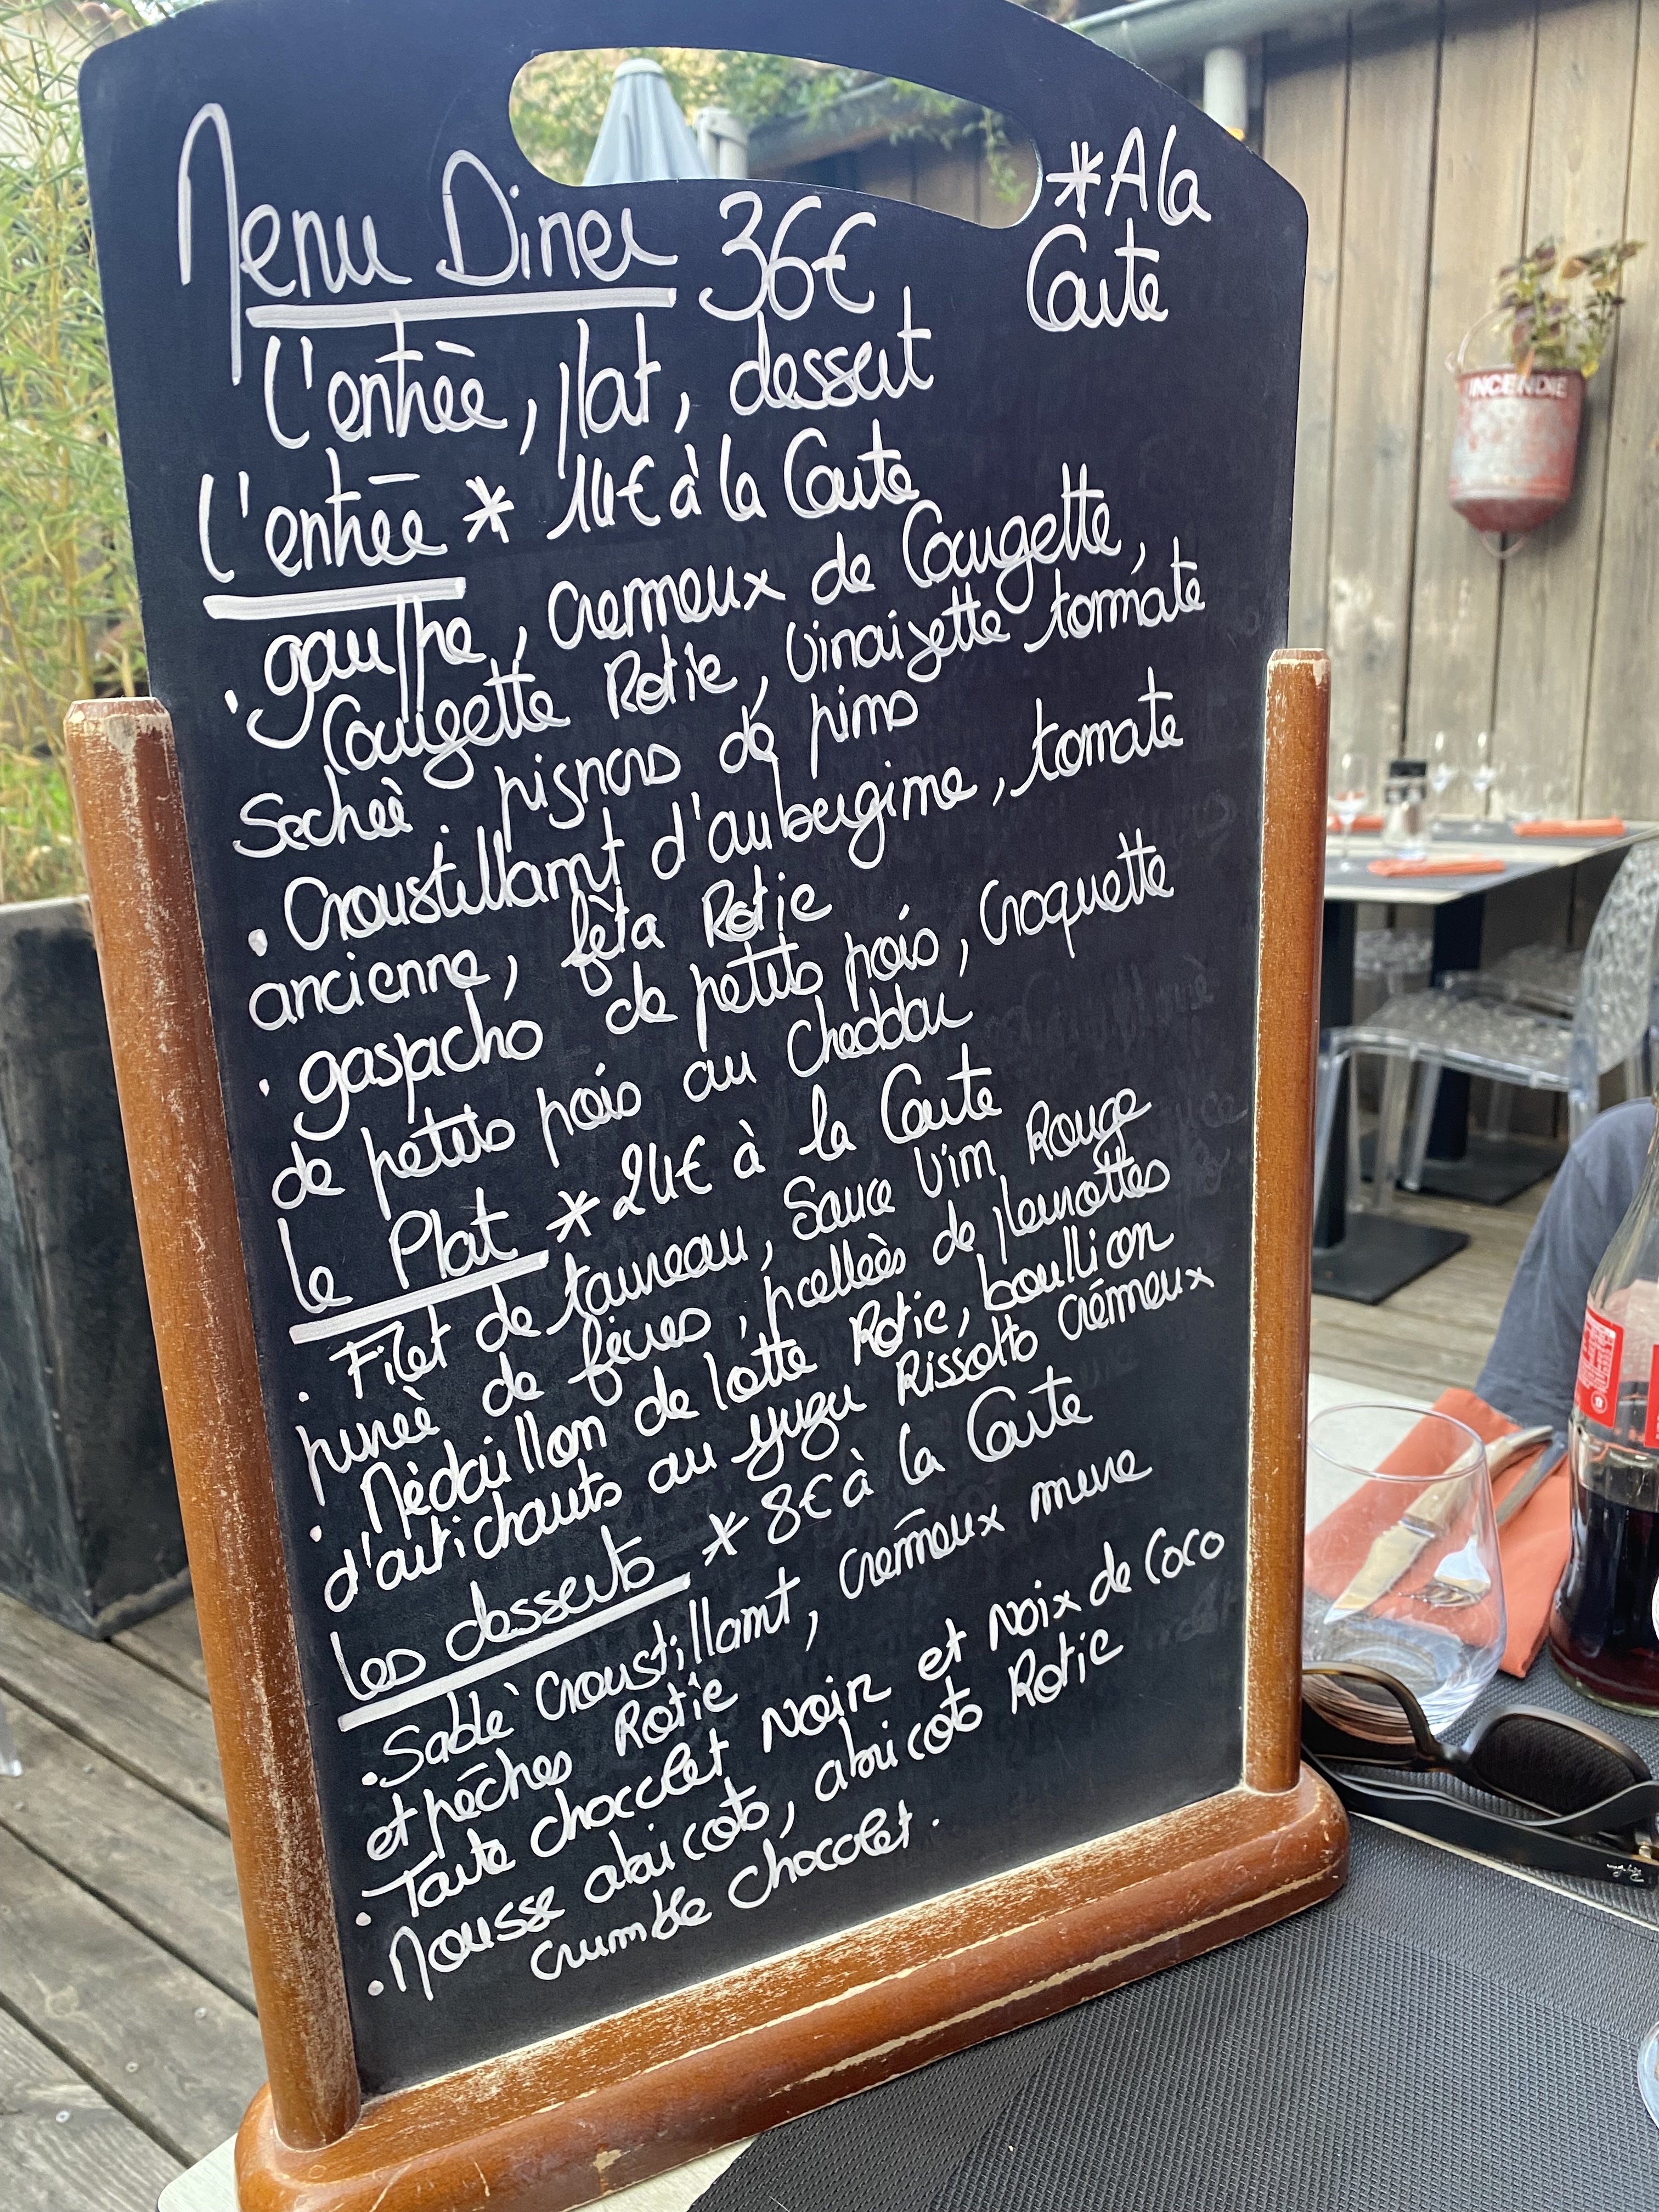 Menu Diner 36€
*A la
Carte
L'entrèe, plat, dessert
L'entrēe * 14€ à la Carte
. gaufre, cremeux de Courgette,
Courgette Rotie, vinaigrette tomate
Sechèè. pignons de pins
. Croustillant d'aubergine, tomate
ancienne, fèta Rotie
. gaspacho de petits pois, Croquette
de petits pois au Cheddar
Le Plat * 24€ à la Carte
. Filet de taureau, Sauce Vin Rouge
purèè de fèves, poellèes de pleurottes
. Mèdaillon de lotte Rotie, boullion
d'artichauts au yuzu Rissotto Crémeux
Les desserts * 8€ à la Carte
. Sablè Croustillant, cremeux mure
et pêches Rotie
. Tarte chocolat Noir et Noix de Coco
. Mousse abricots, abricots Rotie
crumble chocolat.
INCENDIE